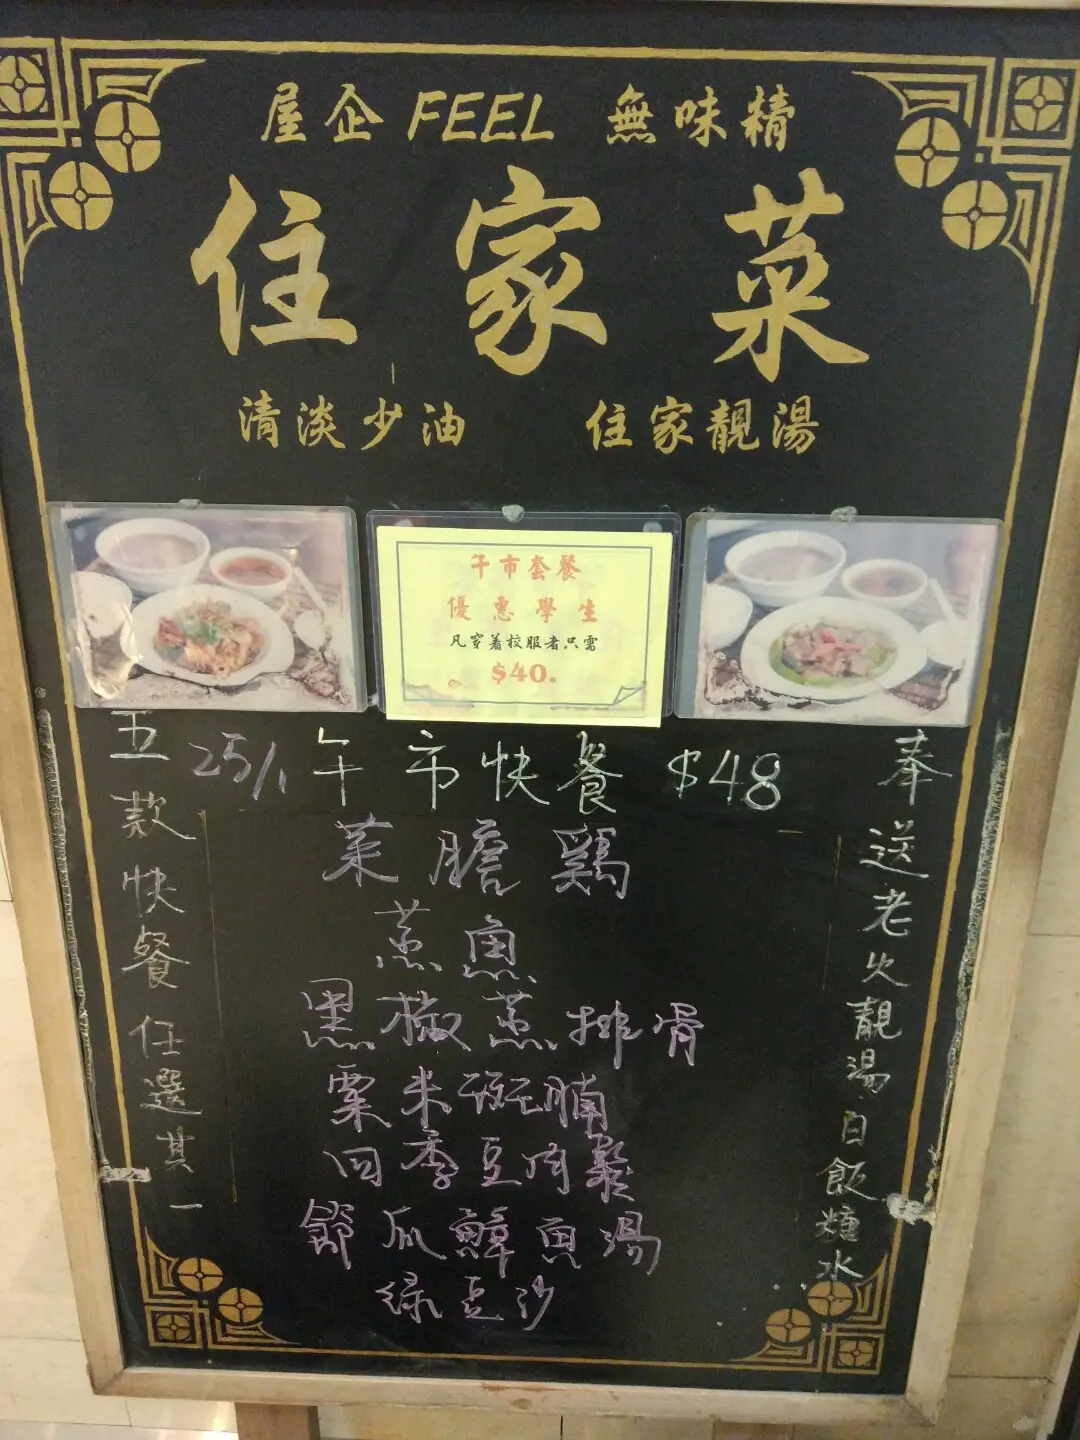 屋企FEEL 無味精
住家菜
清淡少油 住家靚湯
午市套餐
優惠學生
凡穿着校服者只需
$40.
25/1 午市快餐 $48
五款快餐任選其一
菜膽鷄
蒸魚
黑椒蒸排骨
粟米斑腩
四季豆肉鬆
節瓜鱆魚湯
绿豆沙
奉送老火靚湯白飯糖水